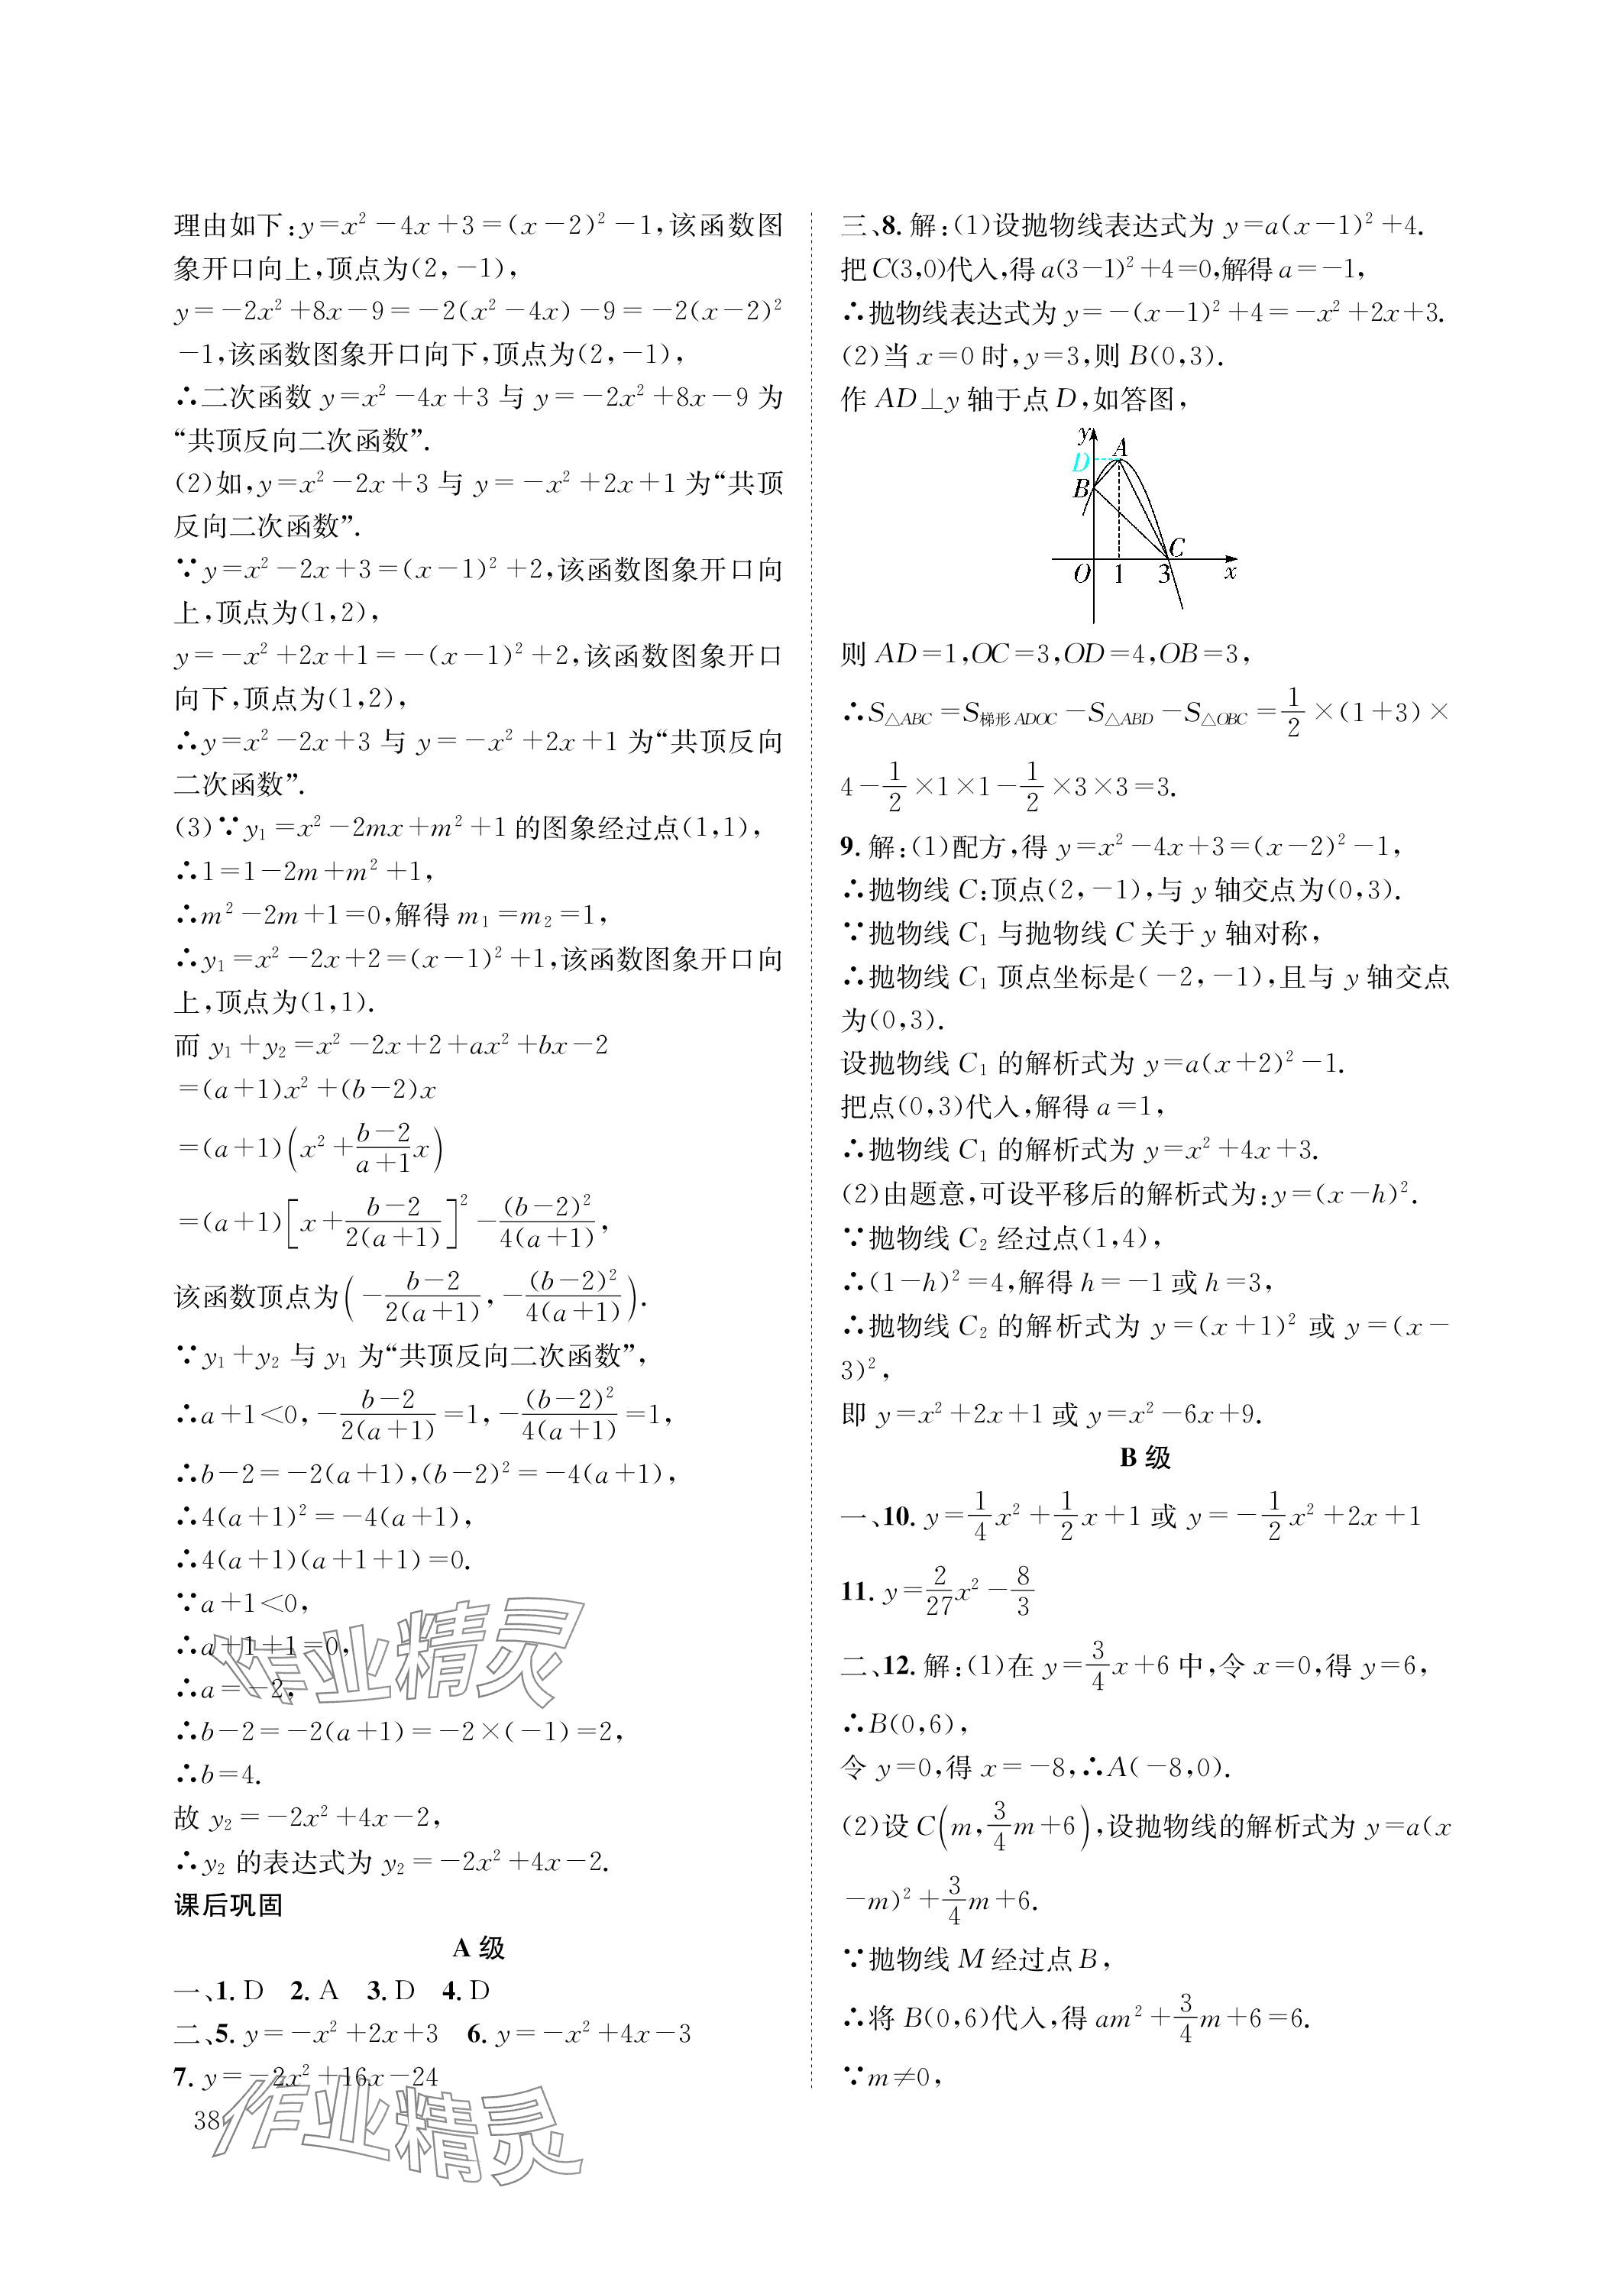 理由如下:y=x²-4x+3=(x-2)²-1,该函数图
象开口向上,顶点为(2,-1),
y=-2x²+8x-9=-2(x²-4x)-9=-2(x-2)²
-1,该函数图象开口向下,顶点为(2,-1),
∴二次函数 y=x²-4x+3 与 y=-2x²+8x-9 为
“共顶反向二次函数”.
(2)如,y=x²-2x+3 与 y=-x²+2x+1 为“共顶
反向二次函数”.
∵y=x²-2x+3=(x-1)²+2,该函数图象开口向
上,顶点为(1,2),
y=-x²+2x+1=-(x-1)²+2,该函数图象开口
向下,顶点为(1,2),
∴y=x²-2x+3 与 y=-x²+2x+1 为“共顶反向
二次函数”.
(3)∵y₁=x²-2mx+m²+1 的图象经过点(1,1),
∴1=1-2m+m²+1,
∴m²-2m+1=0,解得 m₁=m₂=1,
∴y₁=x²-2x+2=(x-1)²+1,该函数图象开口向
上,顶点为(1,1).
而 y₁+y₂=x²-2x+2+ax²+bx-2
=(a+1)x²+(b-2)x
=(a+1)(x²+\frac{b-2}{a+1}x)
=(a+1)[x+\frac{b-2}{2(a+1)}]²-\frac{(b-2)²}{4(a+1)},
该函数顶点为(-\frac{b-2}{2(a+1)},-\frac{(b-2)²}{4(a+1)}).
∵y₁+y₂ 与 y₁ 为“共顶反向二次函数”,
∴a+1<0,-\frac{b-2}{2(a+1)}=1,-\frac{(b-2)²}{4(a+1)}=1,
∴b-2=-2(a+1),(b-2)²=-4(a+1),
∴4(a+1)²=-4(a+1),
∴4(a+1)(a+1+1)=0.
∵a+1<0,
∴a+1+1=0,
∴a=-2,
∴b-2=-2(a+1)=-2×(-1)=2,
∴b=4.
故 y₂=-2x²+4x-2,
∴y₂ 的表达式为 y₂=-2x²+4x-2.
课后巩固
A 级
一、1. D 2. A 3. D 4. D
二、5. y=-x²+2x+3 6. y=-x²+4x-3
7. y=-2x²+16x-24
38
三、8. 解:(1)设抛物线表达式为 y=a(x-1)²+4.
把 C(3,0)代入,得 a(3-1)²+4=0,解得 a=-1,
∴抛物线表达式为 y=-(x-1)²+4=-x²+2x+3.
(2)当 x=0 时,y=3,则 B(0,3).
作 AD⊥y 轴于点 D,如答图,
y
A
D
B
C
O 1 3 x
则 AD=1,OC=3,OD=4,OB=3,
∴S△ABC=S梯形ADOC-S△ABD-S△OBC=\frac{1}{2}×(1+3)×
4-\frac{1}{2}×1×1-\frac{1}{2}×3×3=3.
9. 解:(1)配方,得 y=x²-4x+3=(x-2)²-1,
∴抛物线 C:顶点(2,-1),与 y 轴交点为(0,3).
∵抛物线 C₁ 与抛物线 C 关于 y 轴对称,
∴抛物线 C₁ 顶点坐标是(-2,-1),且与 y 轴交点
为(0,3).
设抛物线 C₁ 的解析式为 y=a(x+2)²-1.
把点(0,3)代入,解得 a=1,
∴抛物线 C₁ 的解析式为 y=x²+4x+3.
(2)由题意,可设平移后的解析式为:y=(x-h)².
∵抛物线 C₂ 经过点(1,4),
∴(1-h)²=4,解得 h=-1 或 h=3,
∴抛物线 C₂ 的解析式为 y=(x+1)² 或 y=(x-
3)²,
即 y=x²+2x+1 或 y=x²-6x+9.
B 级
一、10. y=\frac{1}{4}x²+\frac{1}{2}x+1 或 y=-\frac{1}{2}x²+2x+1
11. y=\frac{2}{27}x²-\frac{8}{3}
二、12. 解:(1)在 y=\frac{3}{4}x+6 中,令 x=0,得 y=6,
∴B(0,6),
令 y=0,得 x=-8,∴A(-8,0).
(2)设 C(m,\frac{3}{4}m+6),设抛物线的解析式为 y=a(x
-m)²+\frac{3}{4}m+6.
∵抛物线 M 经过点 B,
∴将 B(0,6)代入,得 am²+\frac{3}{4}m+6=6.
∵m≠0,
作业精灵
作业精灵